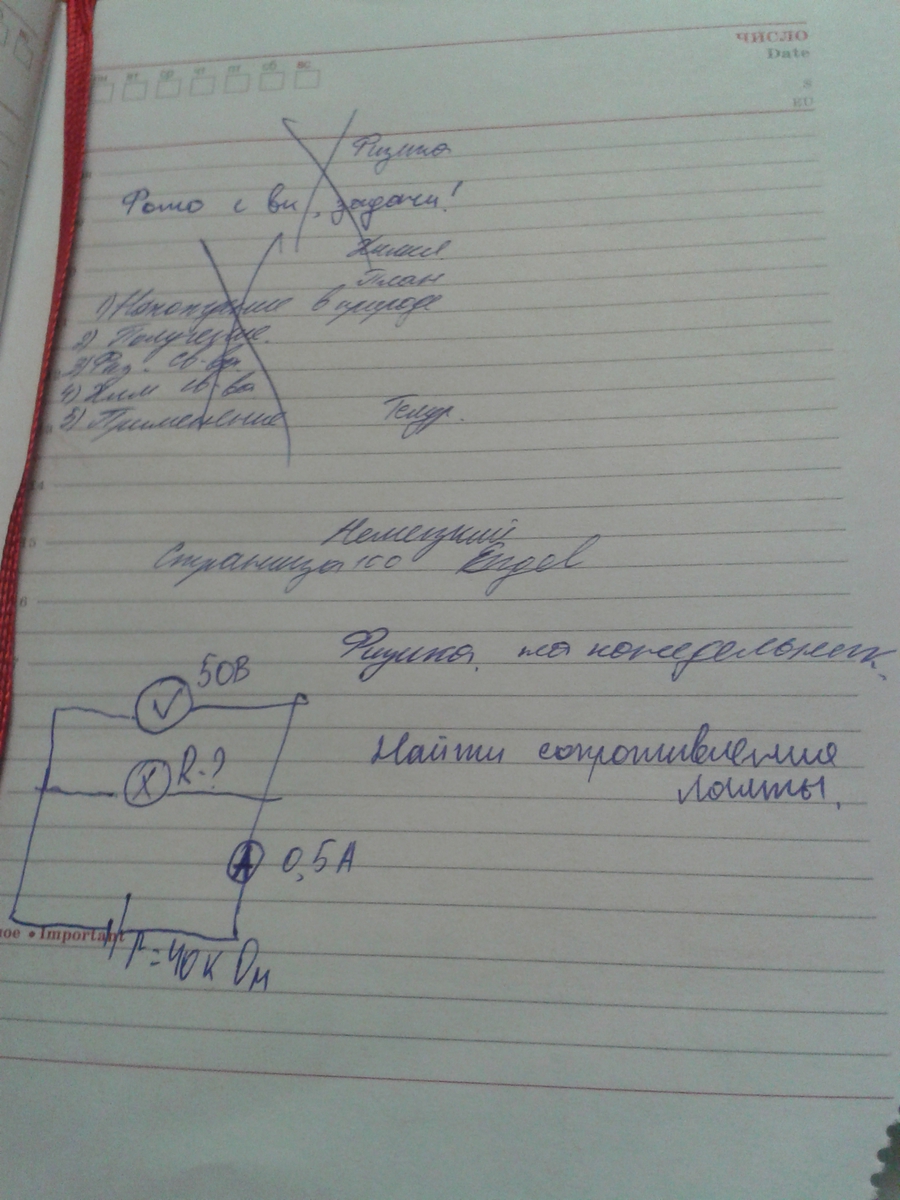 ЧИСЛО
Date
вт ср чт пт сб вс
Физика
Фото с вк, задачи!
Химия
План
1) Нахождение в природе
2) Получение.
3) Физ. св-ва
4) Хим св-ва
5) Применение
14
15
16
Немецкий
Страница 100
Физика, на понедельник.
50В
V
Найти сопротивления
лампы.
X R-?
A 0,5A
• Important
r=40кОм